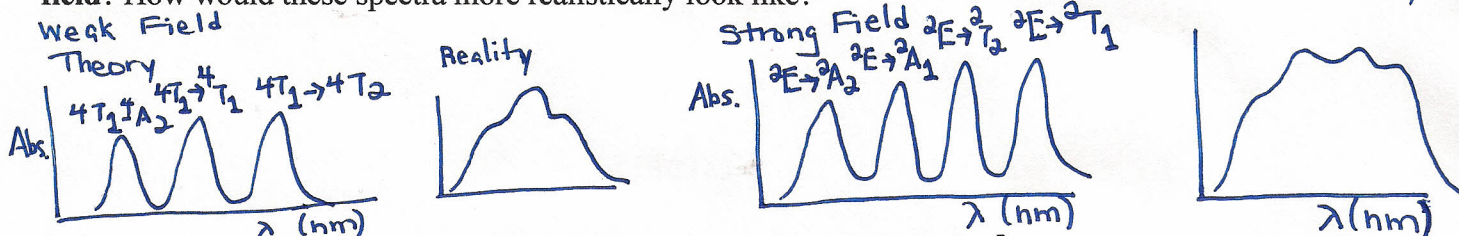 field? How would these spectra more realistically look like?
Weak Field
Theory
4T₁ 4A₂
4T₁→4T₁
4T₁→4T₂
Abs.
λ (nm)
Reality
Strong Field
²E→²A₂
²E→²A₁
²E→²T₂
²E→²T₁
Abs.
λ (nm)
λ (nm)